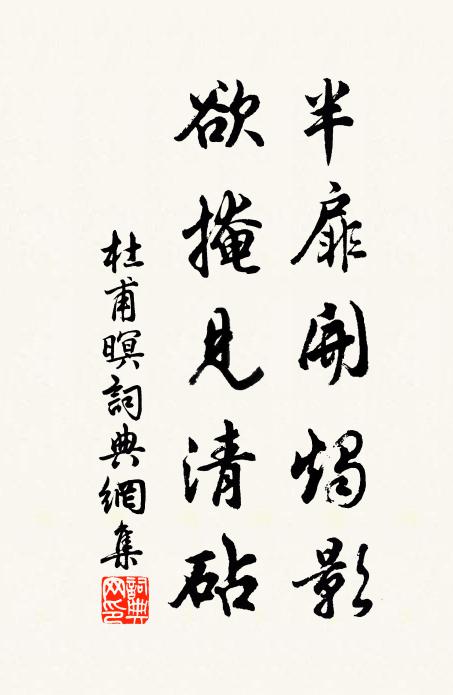 半扉開燭影
欲掩見清砧
杜甫暝詞典網集
詞典網印